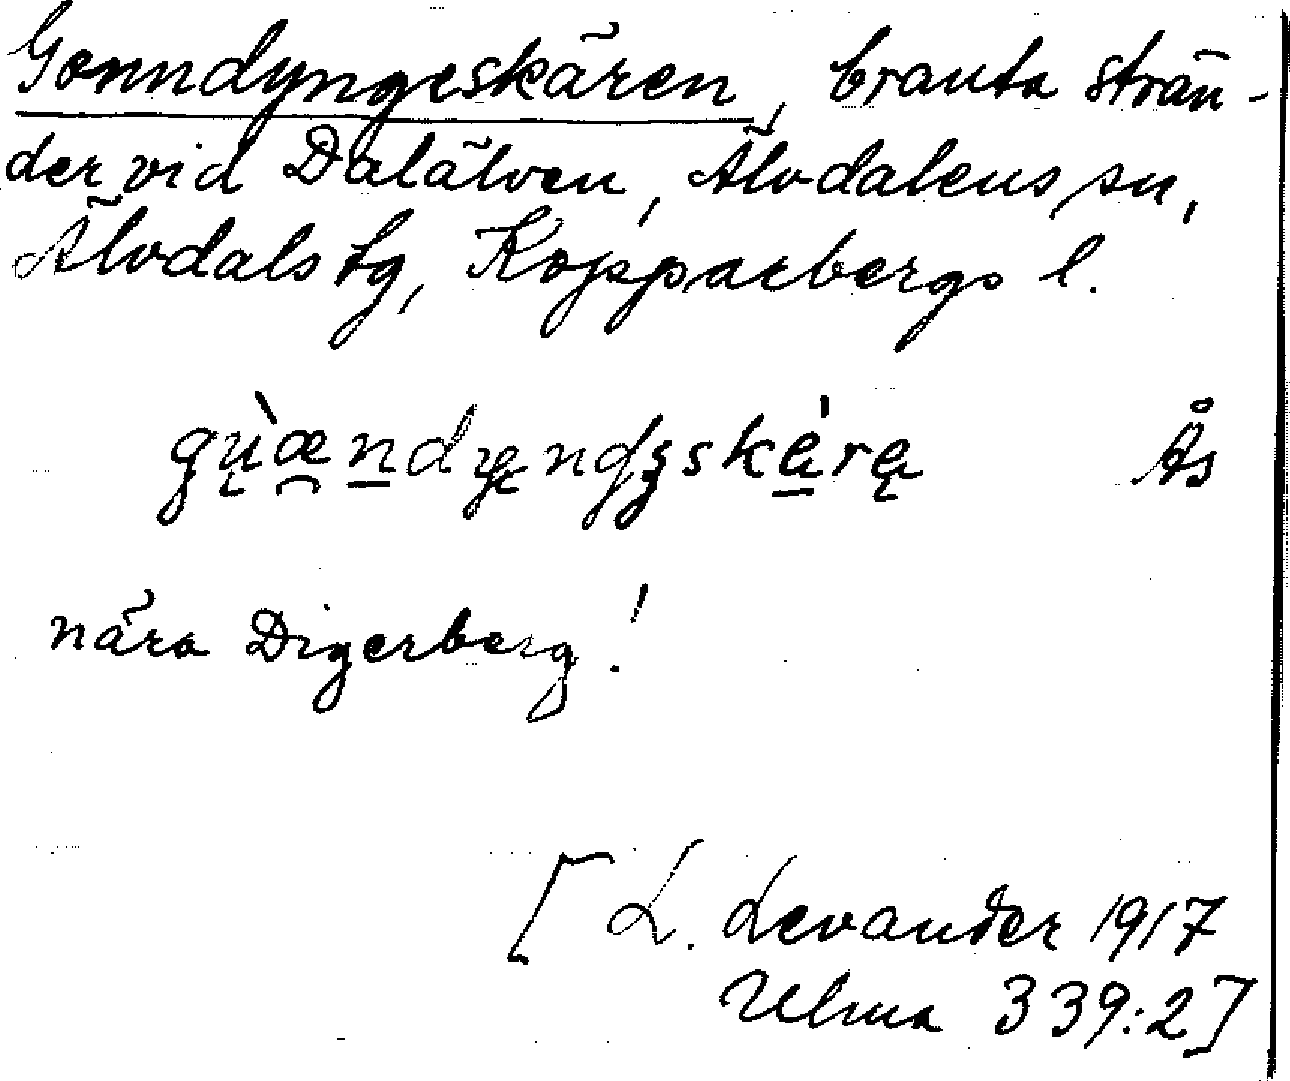 Gonndyngeskären, branta strän-
der vid Dalälven, Älvdalens sn,
Älvdals tg, Kopparbergs l.
Ås
nära Digerberg!
[L. Levander 1917
Ulma 339:2]